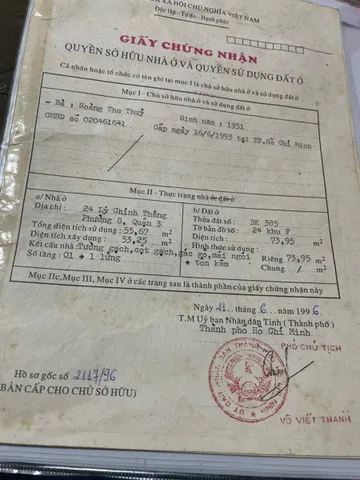 XÃ HỘI CHỦ NGHĨA VIỆT NAM
Độc lập - Tự do - Hạnh phúc
GIẤY CHỨNG NHẬN
QUYỀN SỞ HỮU NHÀ Ở VÀ QUYỀN SỬ DỤNG ĐẤT Ở
Cá nhân hoặc tổ chức có tên ghi tại mục I là chủ sở hữu nhà ở và sử dụng đất ở
Mục I - Chủ sở hữu nhà ở và sử dụng đất ở
- Bà : Hoàng Thu Thuỷ Sinh năm : 1951
CMND số 020461641 Cấp ngày 16/6/1993 tại TP.Hồ Chí Minh
Mục II - Thực trạng nhà ở, đất ở
a/ Nhà ở
Địa chỉ : 24 Lý Chính Thắng
Phường 8, Quận 3
Tổng diện tích sử dụng : 55,67 m2
Diện tích xây dựng : 53,25 m2
Kết cấu nhà : Tường gạch,cột gạch,gác gỗ,mái ngói + tôn kẽm
Số tầng : 01 + 1 lửng
b/ Đất ở
Thửa đất số : BK 385
Tờ bản đồ số : 24 khu F
Diện tích : 73,95 m2
Hình thức sử dụng :
Riêng 73,95 m2
Chung / m2
Mục IIc, Mục III, Mục IV ở các trang sau là thành phần của giấy chứng nhận này
Ngày 21 tháng 6 năm 1996
T.M Uỷ ban Nhân Dân Tỉnh ( Thành phố )
Thành phố Hồ Chí Minh
PHÓ CHỦ TỊCH
Hồ sơ gốc số 2117/96
(BẢN CẤP CHO CHỦ SỞ HỮU)
VÕ VIẾT THANH